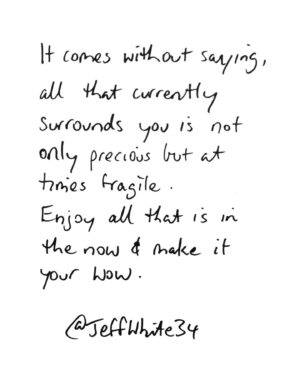 It comes without saying,
all that currently
surrounds you is not
only precious but at
times fragile.
Enjoy all that is in
the now & make it
your wow.
@JeffWhite34